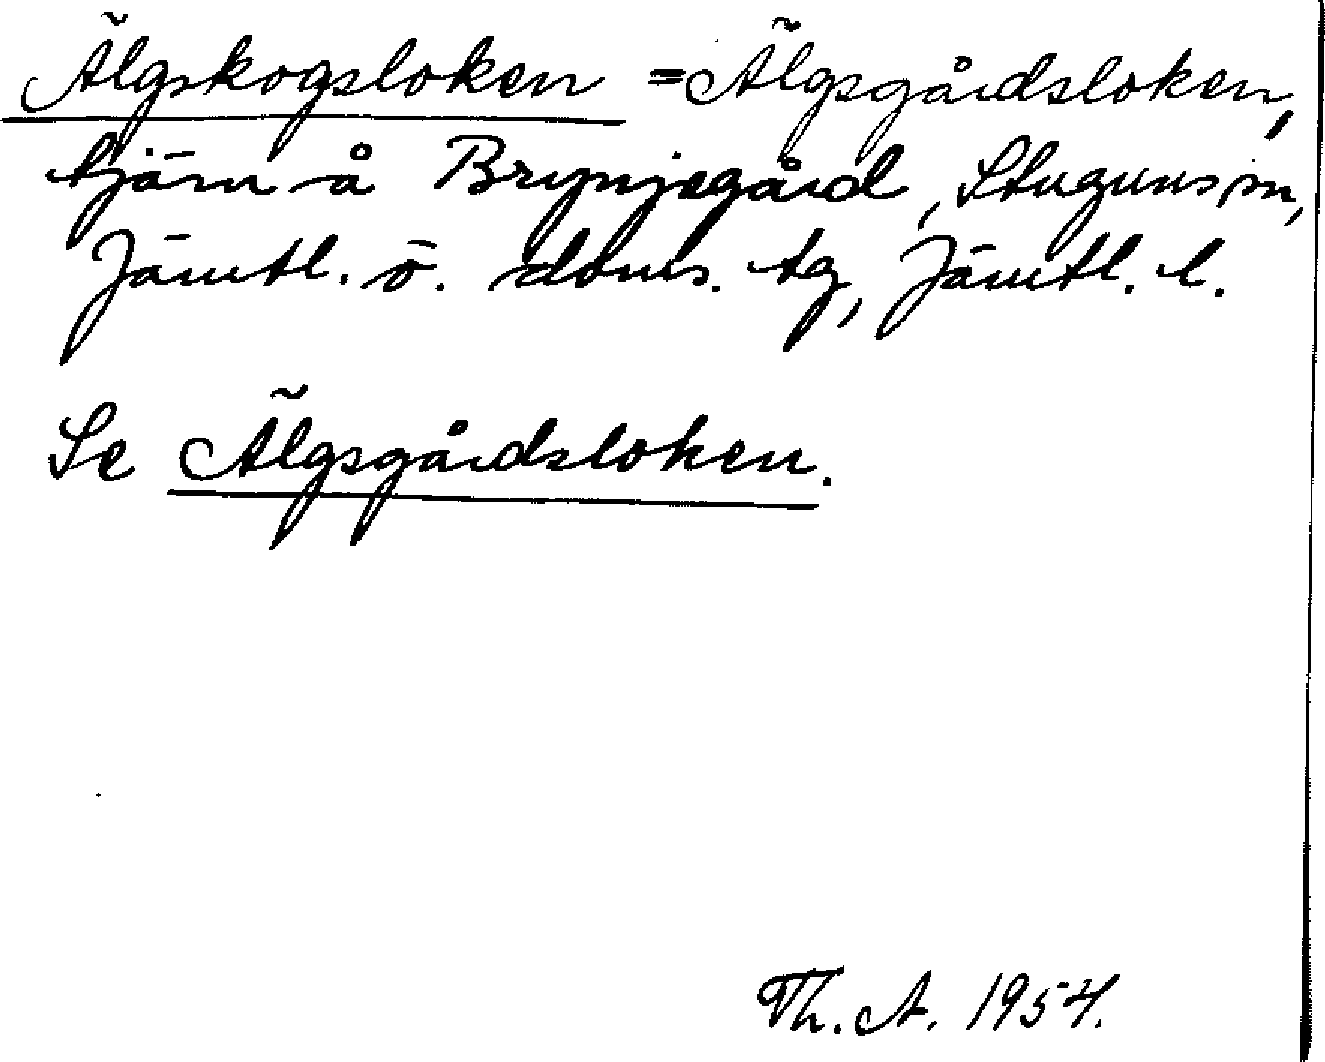 Älgskogsloken = Älgsgårdsloken,
tjärn å Brynjegård, Stuguns sn,
Jämtl. ö. doms. tg, Jämtl. l.
Se Älgsgårdsloken.
Th. A. 1954.